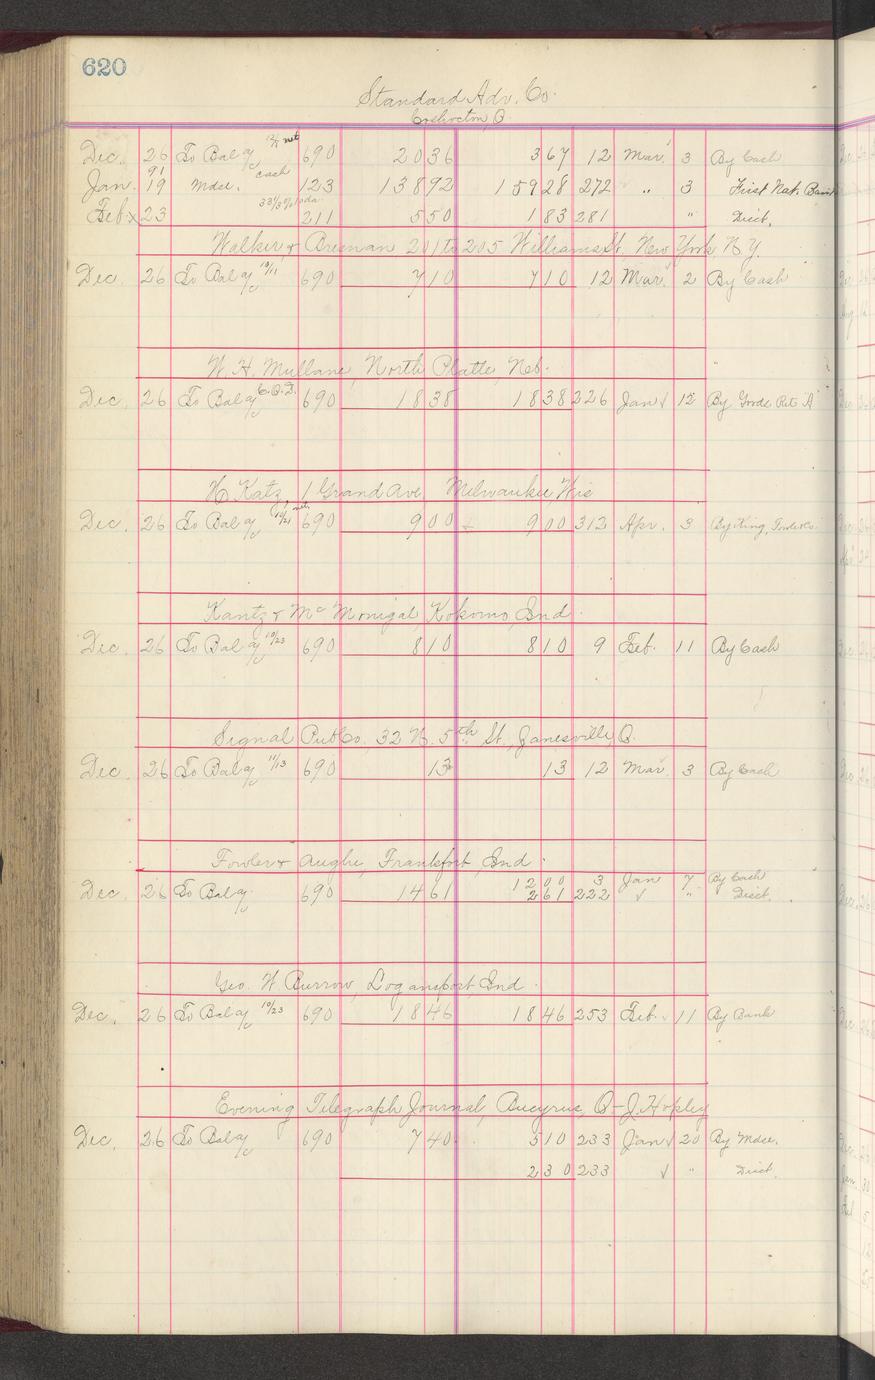 620
Standard Adv. Co.
Coshocton, O.
Dec. 26 To Bal a/c net 690 2036 367 12 Mar. 3 By Cash
Jan. 91 19 Mdse. cash 123 13892 15928 272 " 3 First Nat. Bank
Feb. x 23 33 1/3 % 211 550 183 281 " Disct.
Walker & Bresnan 201 to 205 William St. New York N.Y.
Dec. 26 To Bal a/c 10/11 690 710 710 12 Mar. 2 By Cash
W. H. Mullane, North Platte, Neb.
Dec. 26 To Bal a/c C.O.D. 690 1838 1838 226 Jan √ 12 By Goods Ret'd
H Katz, 1 Grand Ave, Milwaukee, Wis
Dec. 26 To Bal a/c 10/21 net 690 900 900 312 Apr. 3 By King, Fowle & Co.
Kantz & McMonigal, Kokomo, Ind.
Dec. 26 To Bal a/c 10/23 690 810 810 9 Feb. 11 By Cash
Signal Pub Co., 32 N. 5th St., Janesville, O.
Dec. 26 To Bal a/c 11/13 690 13 13 12 Mar. 3 By Cash
Fowler & Aughe, Frankfort, Ind.
1200 3 Jan 7 By Cash
Dec. 26 To Bal a/c 690 1461 261 222 √ " Disct.
Geo. W Burrow, Logansport, Ind.
Dec. 26 To Bal a/c 10/23 690 1846 1846 253 Feb. √ 11 By Bank
Evening Telegraph Journal, Bucyrus, O - J. Hopley
Dec. 26 To Bal a/c 690 740 510 233 Jan √ 20 By Mdse.
230 233 √ " Disct.